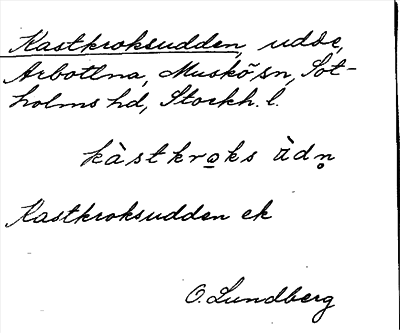 Kastkroksudden, udde,
Arbottna, Muskö sn, Sot-
holms hd, Stockh. l.
kàstkro̲ks ùdn̥
Kastkroksudden ek
O. Lundberg